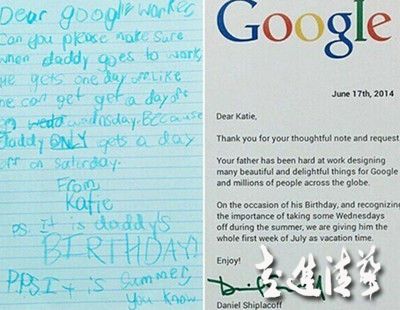 Dear google worker,
Can you please make sure
when daddy goes to work,
he gets one day off. Like
he can get get a day off
on wednsday. Because
daddy ONLY gets a day
off on saturday.
From,
Katie
P.S. It is daddy's
BIRTHDAY!
P.P.S It is summer,
you know
Google
June 17th, 2014
Dear Katie,
Thank you for your thoughtful note and request
Your father has been hard at work designing
many beautiful and delightful things for Google
and millions of people across the globe.
On the occasion of his Birthday, and recognizing
the importance of taking some Wednesdays
off during the summer, we are giving him the
whole first week of July as vacation time.
Enjoy!
Daniel Shiplacoff